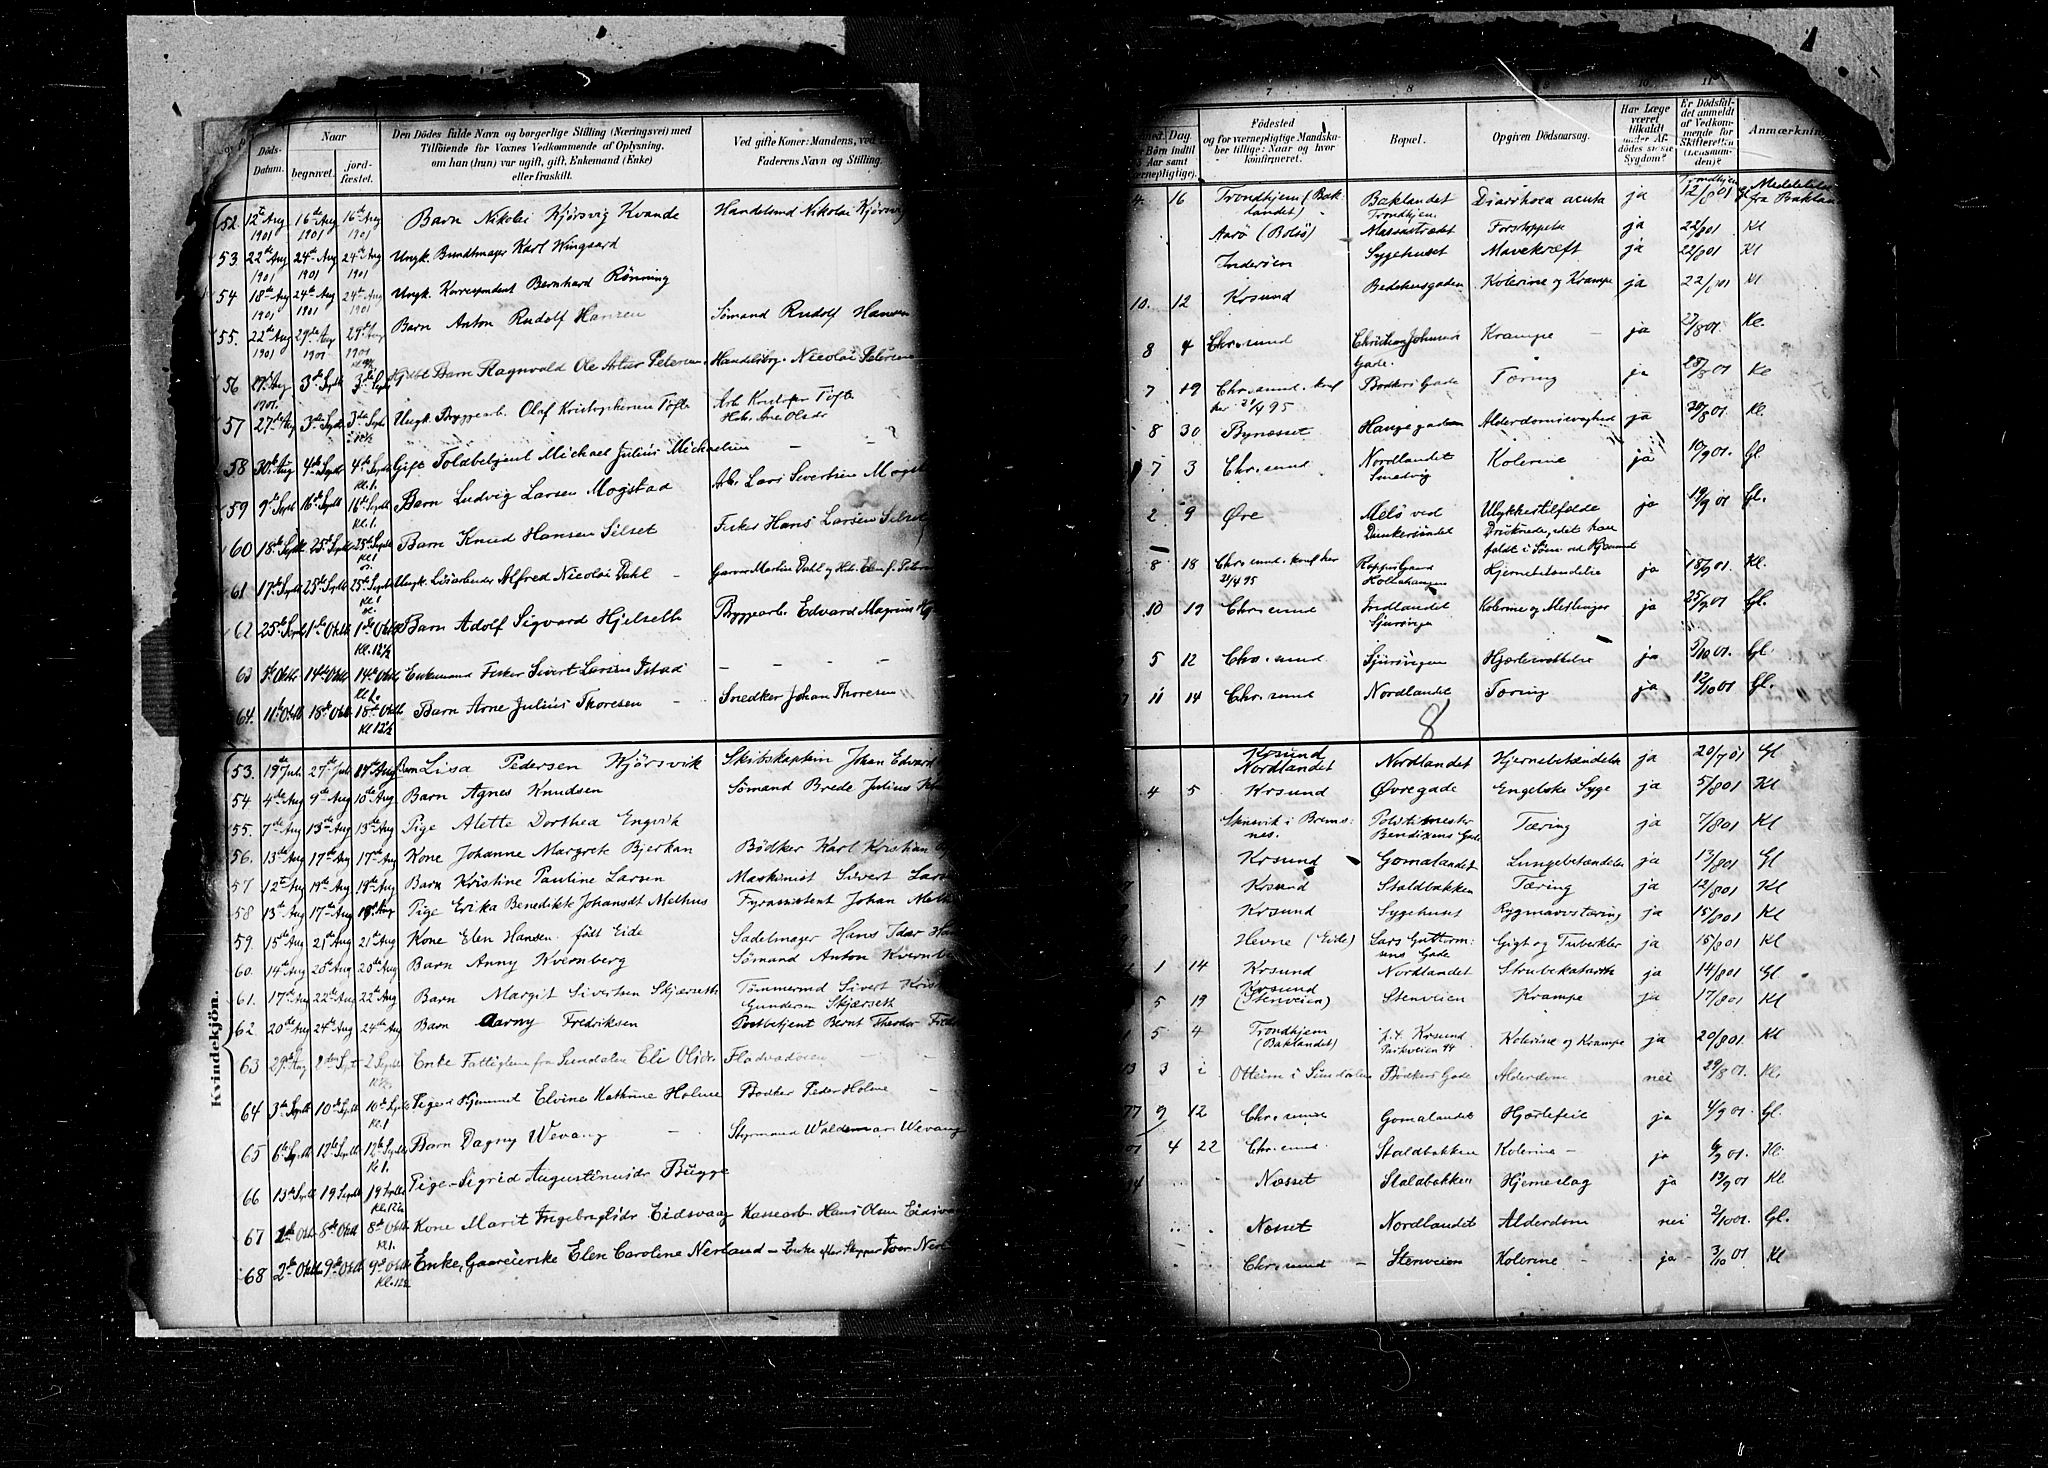 7 8 9 10 11
Naar
Døds-
Datum.
begravet.
jord-
fæstet.
Den Dødes fulde Navn og borgerlige Stilling (Næringsvei) med
Tilføiende for Voxnes Vedkommende af Oplysning,
om han (hun) var ugift, gift, Enkemand (Enke)
eller fraskilt.
Ved gifte Koner: Mandens, ved
Faderens Navn og Stilling.
Dag
Børn indtil
Aar samt
værnepligtige).
Fødested
og for værnepligtige Mandska-
ber tillige: Naar og hvor
konfirmeret.
Bopæl.
Opgiven Dødsaarsag.
Har Læge
været
tilkaldt
under Af-
dødes sidste
Sygdom?
Er Dødsfal-
det anmeldt
af Vedkom-
mende for
Skifteretten
(Lensman-
den)?
Anmærkning
52. 12te Aug 1901 16de Aug 1901 16de Aug 1901 Barn Nikolai Kjörsvig Kvande Handelsmd Nikolai Kjörsvig 4. 16 Trondhjem (Bak-landet) Baklandet Trondhjem Diarrhoea acuta ja Trondhjem 12/8 01 Meddelelse fra Bakland
53 22de Aug 1901 24de Aug 1901 24de Aug 1901 Ungk. Bundtmager Karl Wingaard Aarö (Bolsö) Massastrædet Forstoppelse ja 22/8 01 Kl
54 18de Aug 1901 24de Aug 1901 24de Aug 1901 Ungk. Korrespondent Bernhard Rönning Inderöen Sygehuset Mavekræft ja 22/8 01 Kl
55. 22de Aug 1901 29de Aug 1901 29de Aug 1901 Barn Anton Rudolf Hansen Sömand Rudolf Hansen 10. 12 Krsund Bedehusgaden Kolerine og Krampe ja 22/8 01 Kl
56 27de Aug 1901. 3de Septb 3de Septb Barn Ragnvald Ole Artur Petersen Handelsbg. Nicolai Petersen 8 4 Chr.sund Christian Johnsens Gade. Krampe ja 27/8 01. Kl.
57 27de Aug 3de Septb 3de Septb Ungk. Bryggearb. Olaf Kristophersen Töfte Arb Kristofer Töfte 7 19 Chr.sund. konf her 21/4 95 Bödkers Gade Tæring ja 28/8 01 Kl
58 30te Aug 4de Septb 4de Septb Kl. 1. Gift Toldbetjent Michael Julius Michaelsen — — 8 30 Bynæsset Haugegaden Alderdomssvaghed ja 30/8 01. Kl.
59 9de Septb 16de Septb 16de Septb Kl. 1. Barn Ludvig Larsen Mogstad Arb. Lars Sivertsen Mogst 7 3 Chr.sund Nordlandet Smedvig Kolerine ja 10/9 01. Gl.
60 18de Septb 25de Septb 25de Septb Kl 1 Barn Knud Hansen Silset Fisker Hans Larsen Silset 2 9 Øre Melö ved Dunkersundet Ulykkestilfælde Druknede, idet han faldt i Söen ved Hjemmet ja 19/9 01. Gl.
61 17de Septb 25de Septb 25de Septb Kl. 1 Ungk. Alfred Nicolai Dahl - Garver Martin Dahl 8 18 Chr.sund. konf her 21/4 95 Hjernebetændelse ja 18/9 01. Kl.
62 25de Septb 1ste Oktb 1ste Oktb Kl. 12½ Barn Adolf Sigvard Hjelseth Bryggearb. Edvard Magnus Hj 10 19 Chr.sund Indlandet Kolerine og Meslinger ja 25/9 01 Gl.
63 5te Oktb 14de Oktb 14de Oktb Kl. 1. Enkemand Fisker Sivert Larsen Istad — — — 5 12 Chr.sund Sjursvigen Hjærtelammelse ja 5/10 01. Gl.
64. 11te Oktb 18de Oktb 18de Oktb Kl 12½ Barn Arne Julius Thoresen - Snedker Johan Thoresen 11 14 Chr.sund Nordlandet Tæring ja 12/10 01 Gl.
8
Kvindekjön.
53. 19de Juli 27de Juli Aug Barn Lisa Pedersen Kjörsvik Skibskaptein Johan Edvard Krsund Nordlandet Nordlandet Hjernebetændelse ja 20/7 01 Gl
54 4de Aug 9de Aug 10de Aug Barn Agnes Knudsen Sömand Brede Julius 4 5 Krsund Övregade Engelske Syge ja 5/8 01 Kl
55. 7de Aug 13de Aug 13de Aug Pige Alette Dorthea Engvik i Brems-nes. Politimester Bendixens Gade Tæring ja 7/8 01 Kl
56. 13de Aug 17de Aug 17de Aug Kone Johanne Margrete Bjerkan Bödker Karl Kristian Krsund Gomalandet Lungebetændelse ja 13/8 01 Gl
57 12te Aug 19de Aug 19de Aug Barn Kristine Pauline Larsen Maskinist Sivert Lars Krsund Staldbakken Tæring ja 12/8 01 Kl
58 13de Aug 17de Aug 18de Aug Pige Erika Benedikte Johansdt Melhus Fyrassistent Johan Mel Krsund Sygehuset Rygmarvstæring ja 15/8 01 Kl
59. 15de Aug 21de Aug 21de Aug Kone Elen Hansen födt Eide Sadelmager Hans Idar Han Hevne (Eide) Lars Guttorm-sens Gade Gigt og Tuberkler ja 15/8 01 Kl
60. 14de Aug 20de Aug 20de Aug Barn Anny Kvernberg Sömand Anton Kvernbe 1 14 Krsund Nordlandet Strubekatarrh ja 14/8 01 Gl
61. 17de Aug 22de Aug 22de Aug Barn Margit Sivertsen Skjærseth Tömmermd Sivert Krist Gundersen Skjærseth 5 19 Krsund (Stenveien) Stenveien Krampe ja 17/8 01 Kl
62. 20de Aug 24de Aug 24de Aug Barn Aarny Fredriksen Postbetjent Bernt Theodor Fred 5 4 Trondhjem (Baklandet) p.t. Krsund Parkveien 44 Kolerine og Krampe ja 20/8 01. Kl
63 29de Aug 2den Sept 2 Septb Enke Fattiglem fra Sundalen Eli Olsdr. Fladvadøien 3 i Otteim i Sundalen Bödkers Gade Alderdom nei 29/8 01. Kl.
64 3de Septb 10de Septb 10de Septb Kl. 1 Pige i Hjemmet Elvine Kathrine Holme Bödker Peder Holme - 77 9 12 Chr.sund Gomalandet Hjærtefeil ja 4/9 01. Gl.
65 6te Septb 12te Septb 12te Septb Kl 1. Barn Dagny Wevang - Styrmand Waldemar Wevang 01 4 22 Chr.sund Staldbakken Kolerine - ja 6/9 01. Kl.
66 13de Septb 19 Septb 19 Septb Kl. 12½ Pige Sigrid Augustinusdr Bugge Næsset Staldbakken Hjerneslag ja 13/9 01 Kl
67 Oktb 8de Oktb 8de Oktb Kl. 1. Kone Marit Ingebrigtsdr Eidsvaag Kassearb. Hans Olsen Eidsvaa Næsset Nordlandet Alderdom nei 2/10 01. Gl.
68 2de Oktb 9de Oktb 9de Oktb Kl. 12½ Enke, Gaareierske Elen Caroline Nerland - Enke efter Skipper Iver Nerl Chr.sund - Stenveien Kolerine - ja 3/10 01 Kl